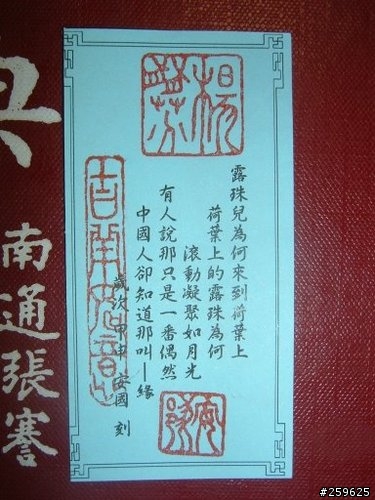 露珠兒為何來到荷葉上
荷葉上的露珠為何
滾動凝聚如月光
有人說那只是一番偶然
中國人卻知道那叫—緣
歲次甲申 安國 刻
南通張謇
#259625